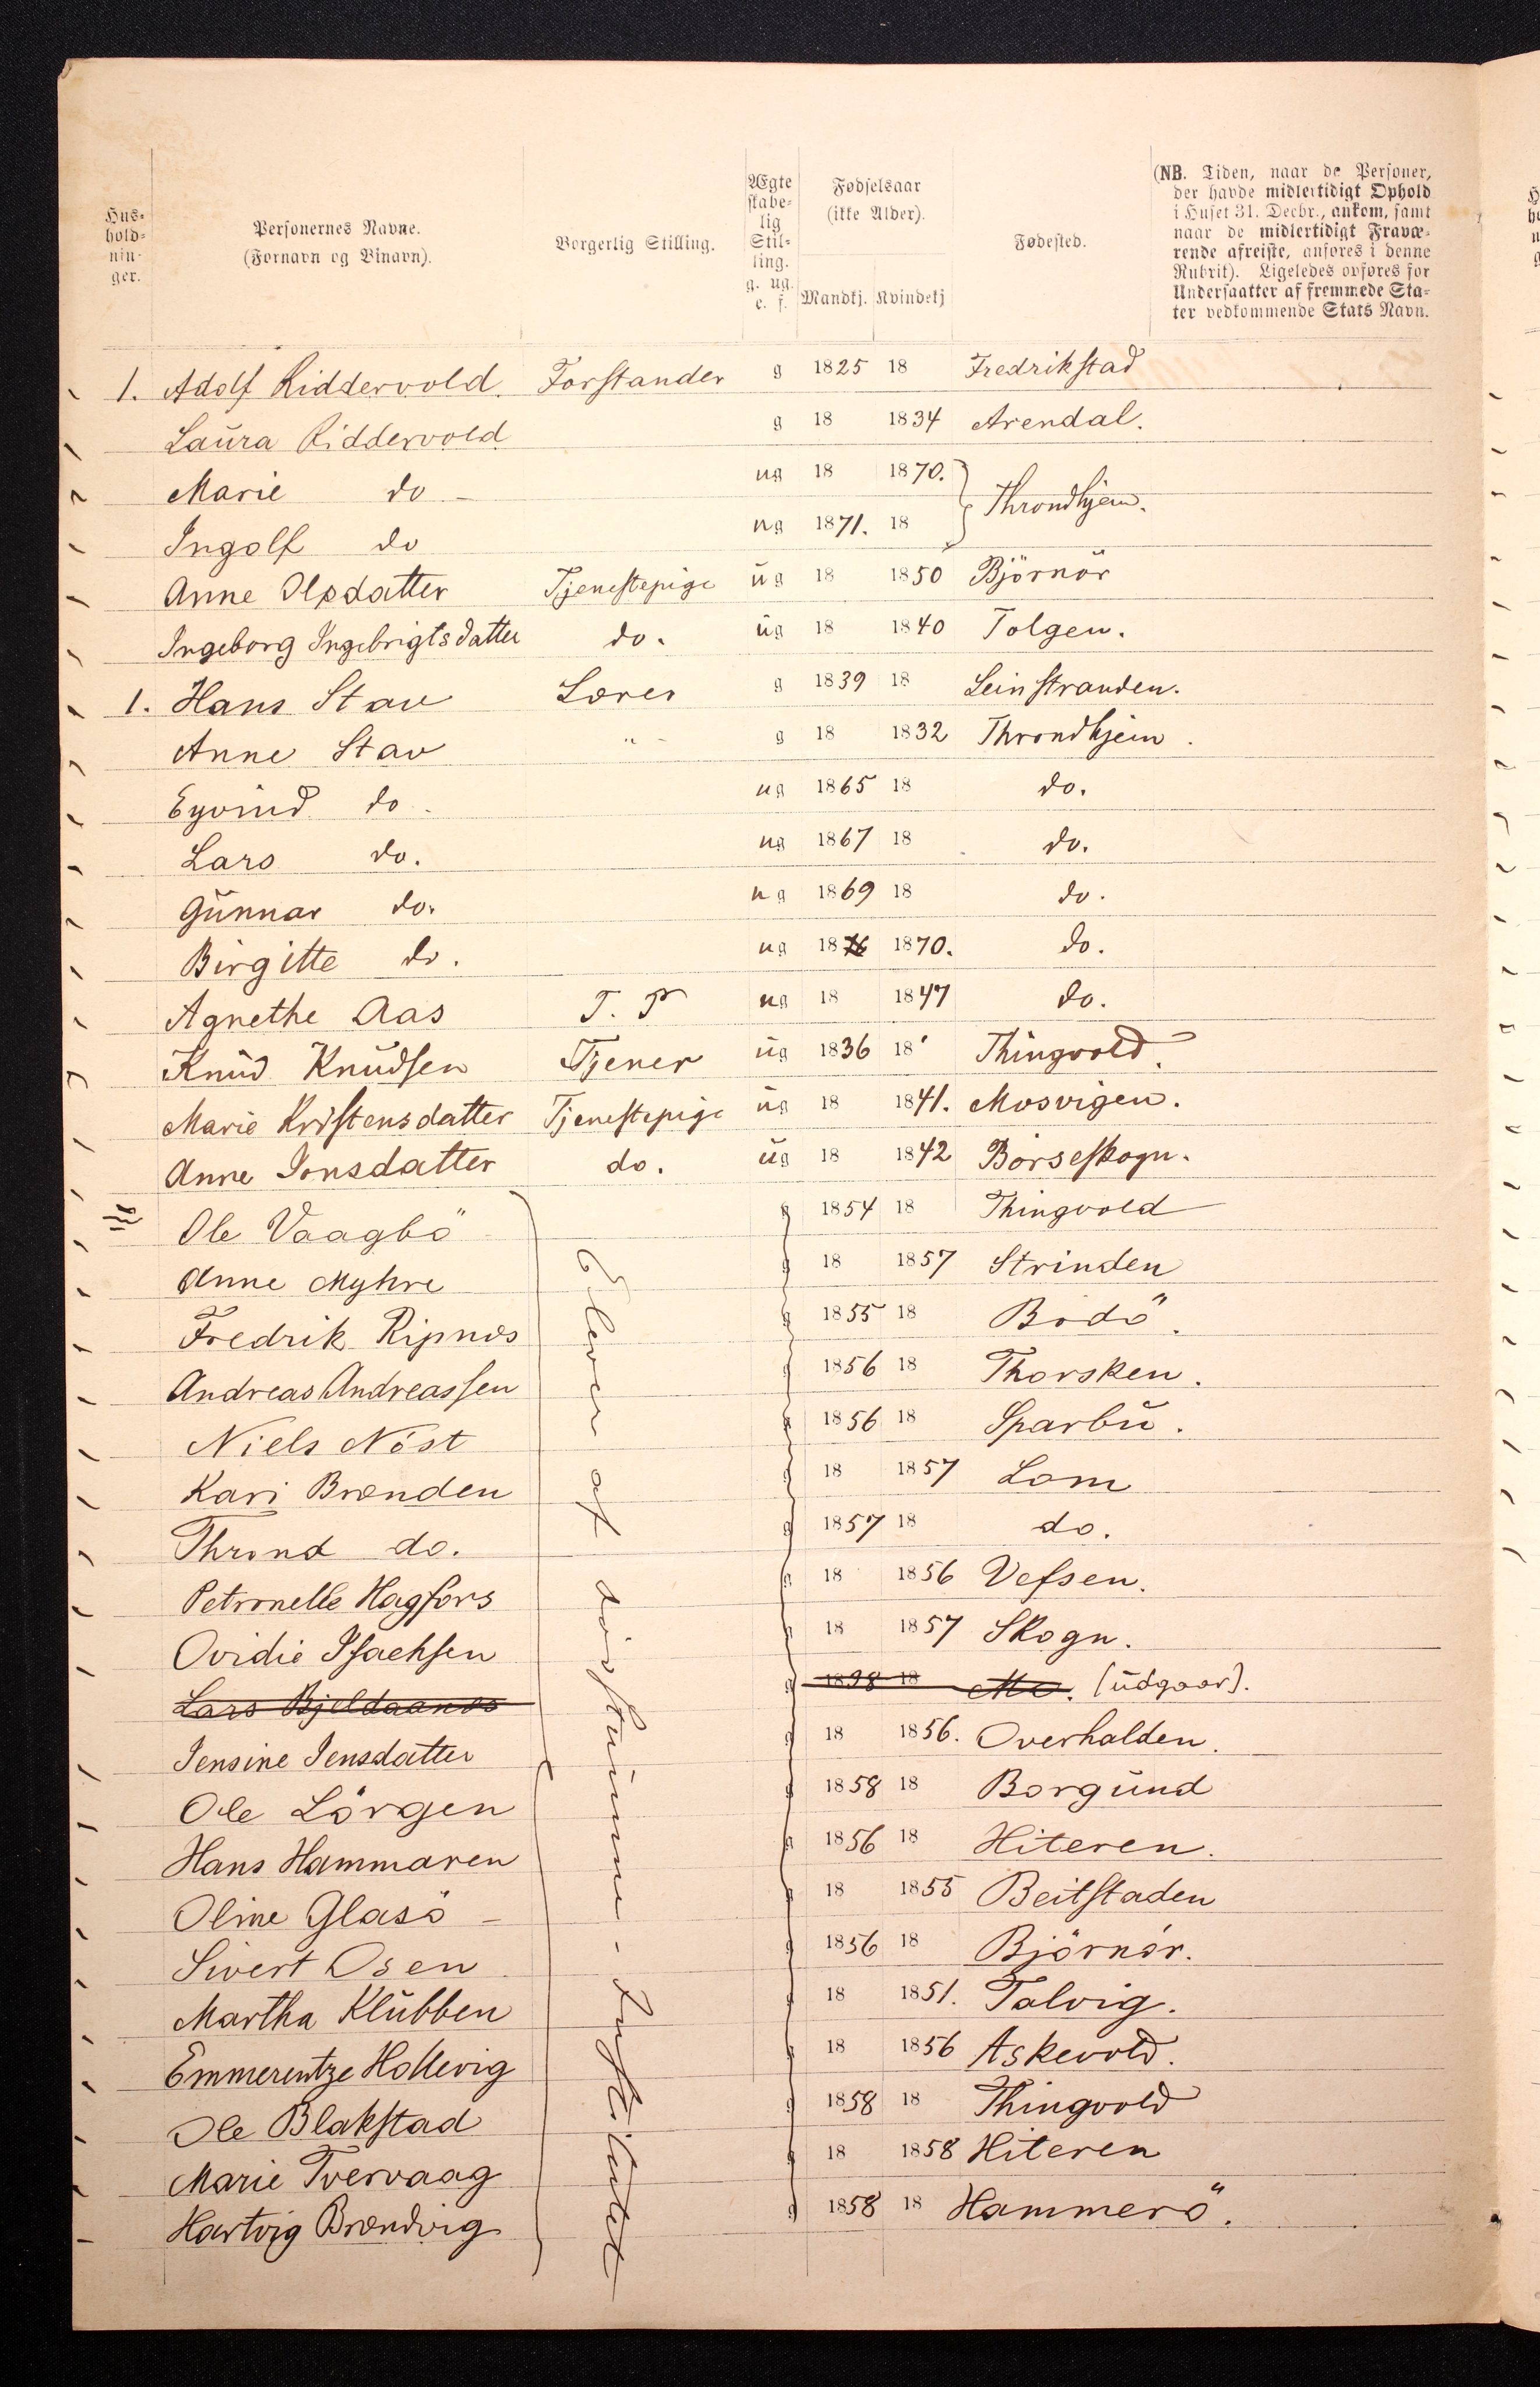 Hus-
hold-
nin-
ger.
Personernes Navne.
(Fornavn og Binavn).
Borgerlig Stilling.
Ægte
skabe-
lig
Stil-
ling.
g. ug.
e. f.
Fødselsaar
(ikke Alder).
Mandkj. Kvindekj
Fødested.
(NB. Tiden, naar de Personer,
der havde midlertidigt Ophold
i Huset 31. Decbr., ankom, samt
naar de midlertidigt Fravæ-
rende afreiste, anføres i denne
Rubrik). Ligeledes opføres for
Undersaatter af fremmede Sta-
ter vedkommende Stats Navn.
1. Adolf Riddervold. Forstander g 1825 18 Fredrikstad
Laura Riddervold g 18 1834 Arendal.
Marie do - ug 18 1870. Throndhjem.
Ingolf do ug 1871. 18
Anne Olsdatter Tjenestepige ug 18 1850 Björnör
Ingeborg Ingebrigtsdatter do. ug 18 1840 Tolgen.
1. Hans Stav Lærer g 1839 18 Leinstranden.
Anne Stav " - g 18 1832 Throndhjem.
Eyvind do. ug 1865 18 do.
Lars do. ug 1867 18 do.
Gunnar do. ug 1869 18 do.
Birgitte do. ug 18 1870. do.
Agnethe Aas T. P ug 18 1847 do.
Knud Knudsen Tjener ug 1836 18 Thingvold.
Marie Kristensdatter Tjenestepige ug 18 1841. Mosvigen.
Anne Jonsdatter do. ug 18 1842 Börseskogn.
Ole Vaagbö g 1854 18 Thingvold
Anne Myhre g 18 1857 Strinden
Fredrik Ripnæs g 1855 18 Bodö.
Andreas Andreassen g 1856 18 Thorsken.
Niels Nöst g 1856 18 Sparbu.
Kari Brænden g 18 1857 Lom
Thrond do. g 1857 18 do.
Petronelle Hagfors g 18 1856 Vefsen.
Ovidie Isachsen g 18 1857 Skogn.
Lars Bjeldaanes g 1898 18 Mo. (udgaar).
Jensine Jensdatter g 18 1856. Overhalden.
Ole Lörgen g 1858 18 Borgund
Hans Hammaren g 1856 18 Hiteren.
Oline Glasö - g 18 1855 Beitstaden
Sivert Osen g 1856 18 Björnör.
Martha Klubben g 18 1851. Talvig.
Emmerentze Hollevig g 18 1856 Askevold.
Ole Blakstad g 1858 18 Thingvold
Marie Tvervaag g 18 1858 Hiteren
Hartvig Brændvig g 1858 18 Hammerö.
Elever af døvstumme-Institutet